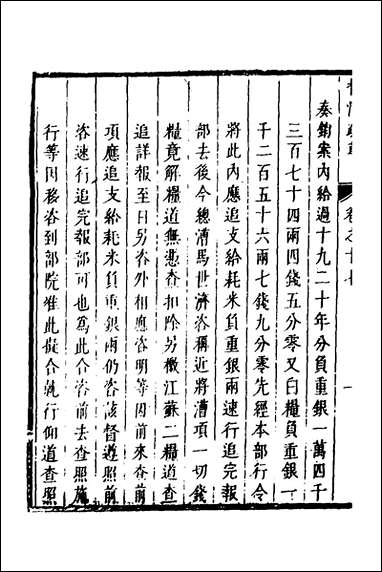 奏銷案內給過十九二十年分負重銀一萬四千
三百七十四兩四錢五分零又白糧負重銀一
千二百五十六兩七錢九分零先經本部行令
將此內應追支給耗米負重銀兩速行追完報
部去後今總漕馬世濟咨稱近將漕項一切錢
糧竟解糧道無憑查扣除另檄江蘇二糧道查
追詳報至日另咨外相應咨明等因前來查前
項應追支給耗米負重銀兩仍咨該督遵照前
咨速行追完報部可也為此合咨前去查照施
行等因移咨到部院准此擬合就行仰道查照
卷之十七
一